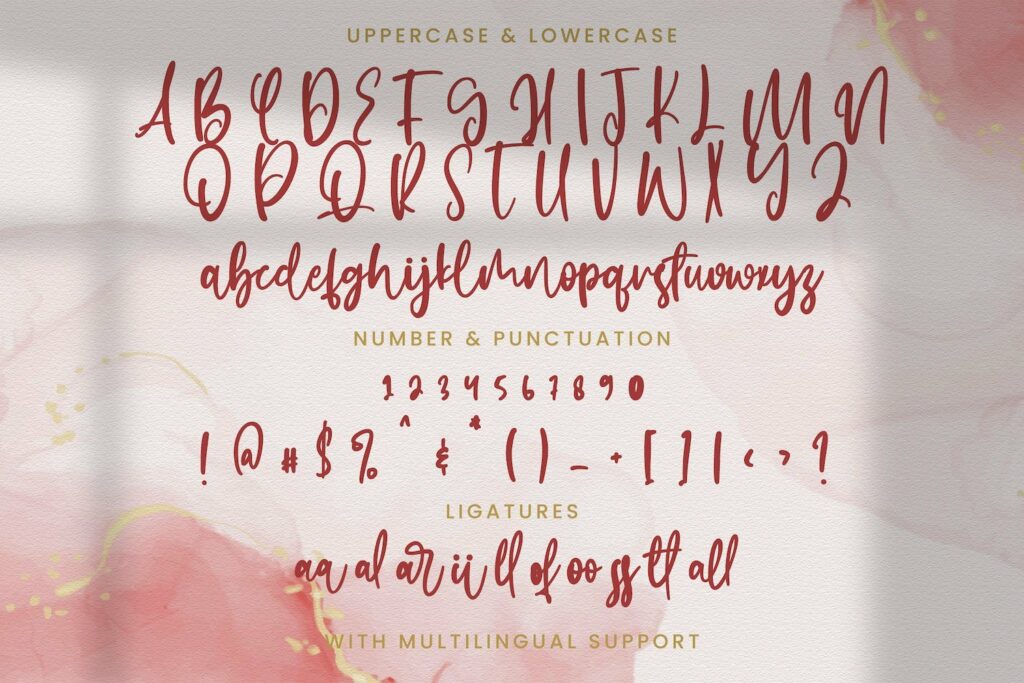 UPPERCASE & LOWERCASE
A B C D E F G H I J K L M N
O P Q R S T U V W X Y Z
abcdefghijklmnopqrstuvwxyz
NUMBER & PUNCTUATION
1 2 3 4 5 6 7 8 9 0
! @ # $ % ^ & * ( ) _ + [ ] | < > ?
LIGATURES
aa al ar ii ll of oo ss tt all
WITH MULTILINGUAL SUPPORT